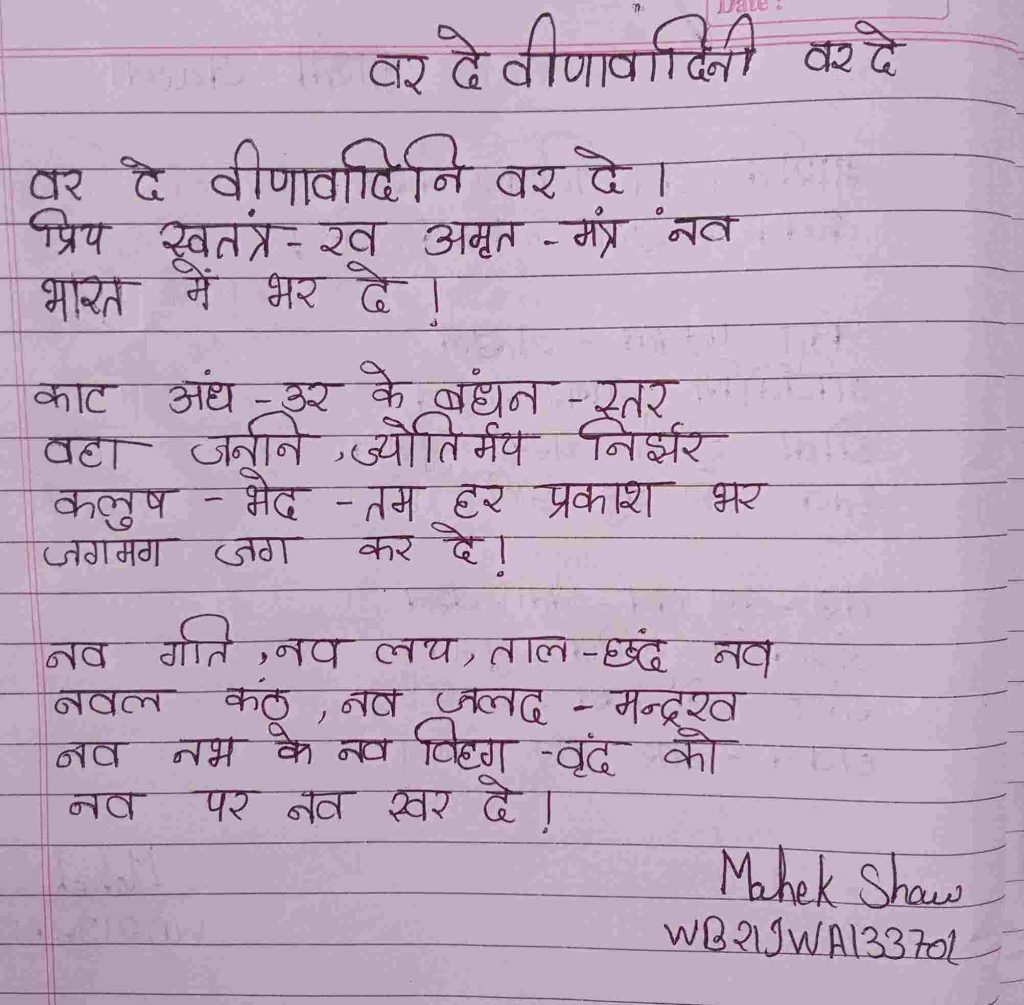 Date :
वर दे वीणावादिनी वर दे
वर दे वीणावादिनि वर दे ।
प्रिय स्वतंत्र - रव अमृत - मंत्र नंव
भारत में भर दे !
काट अंध - उर के बंधन - स्तर
वहा जननि , ज्योतिर्मय निर्झर
कलुष - भेद - तम हर प्रकाश भर
जगमग जग कर दे !
नव गति , नव लय , ताल - छंद नव
नवल कंठ , नव जलद - मन्द्ररव
नव नभ के नव विहग - वृंद को
नव पर नव स्वर दे !
Mahek Shaw